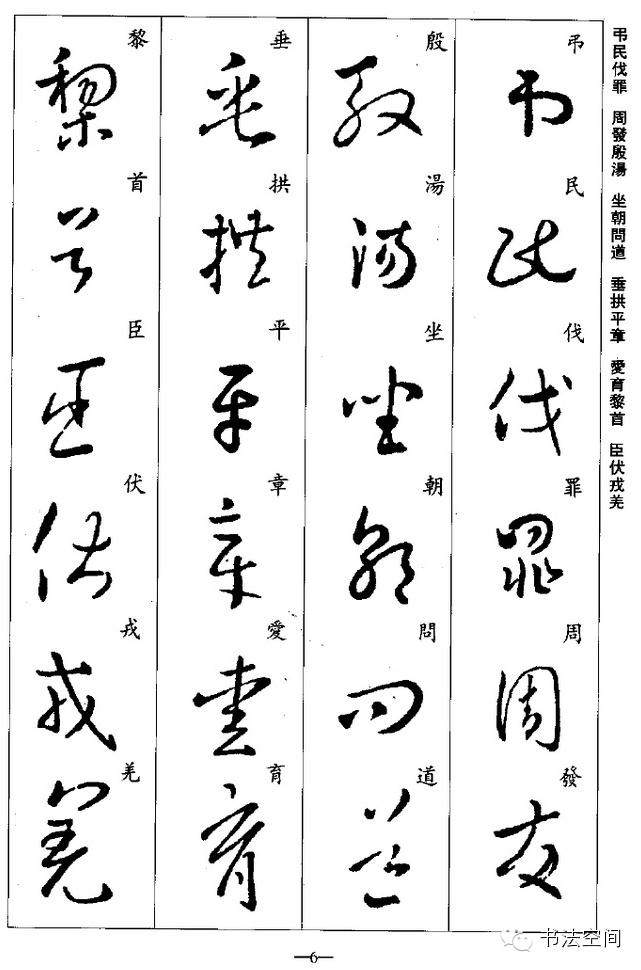 弔民伐罪 周發殷湯 坐朝問道 垂拱平章 愛育黎首 臣伏戎羌
弔民伐罪周發
殷湯坐朝問道
垂拱平章愛育
黎首臣伏戎羌
6
书法空间